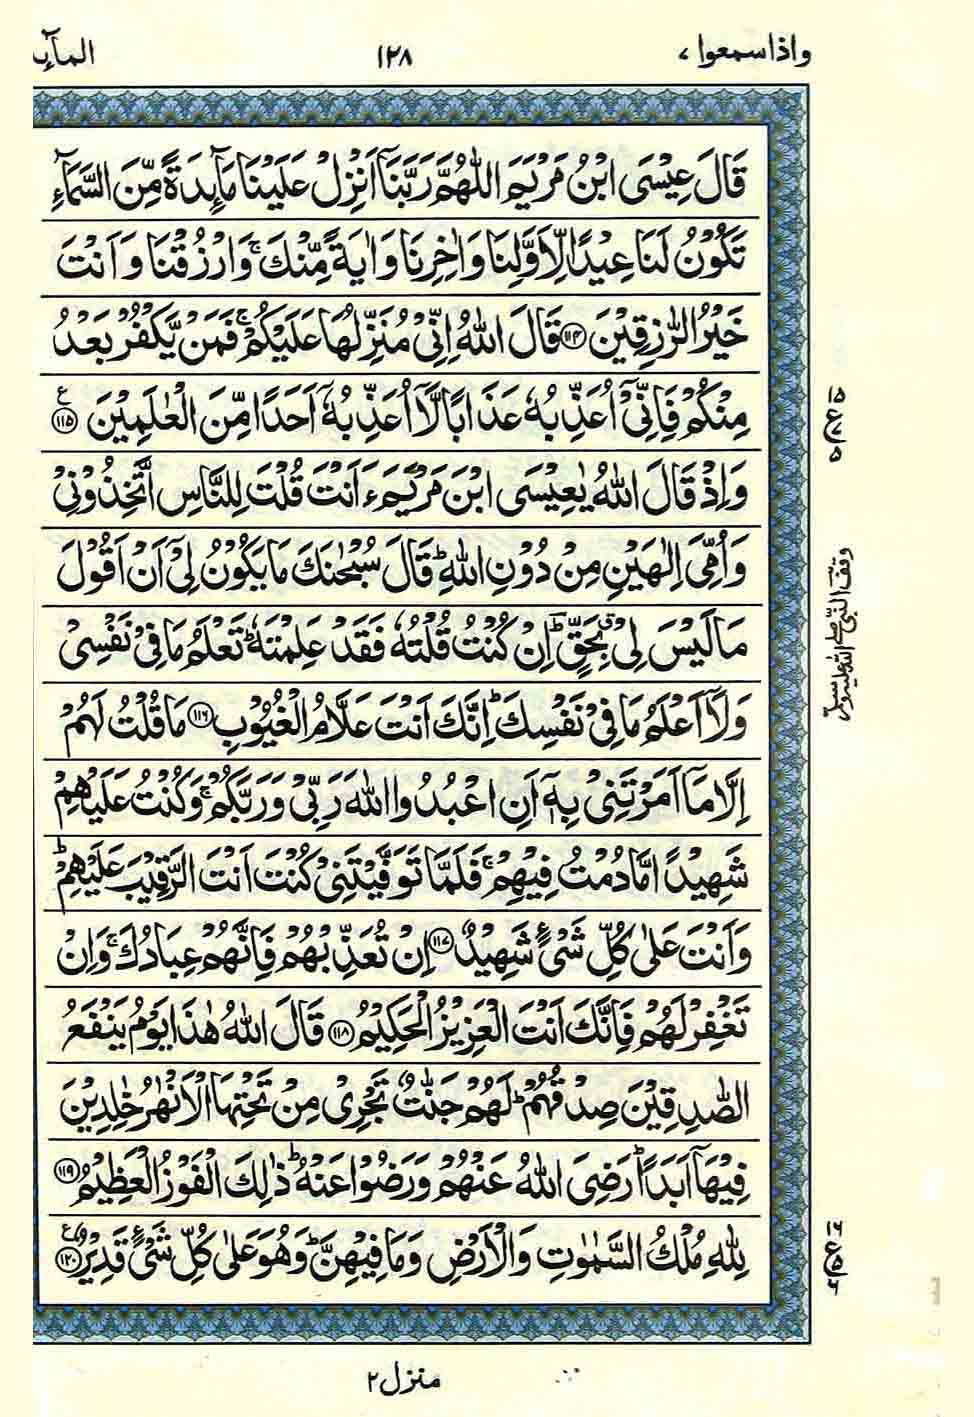 واذاسمعوا ٧
١٢٨
المآىٕ
قَالَ عِيْسَى ابْنُ مَرْيَمَ اللّٰهُمَّ رَبَّنَاۤ اَنْزِلْ عَلَيْنَا مَآىِٕدَةً مِّنَ السَّمَآءِ
تَكُوْنُ لَنَا عِيْدًا لِّاَوَّلِنَا وَاٰخِرِنَا وَاٰيَةً مِّنْكَ ۚ وَارْزُقْنَا وَاَنْتَ
خَيْرُ الرّٰزِقِيْنَ ۝۱۱۴ قَالَ اللّٰهُ اِنِّيْ مُنَزِّلُهَا عَلَيْكُمْ ۚ فَمَنْ يَّكْفُرْ بَعْدُ
مِنْكُمْ فَاِنِّيْۤ اُعَذِّبُهٗ عَذَابًا لَّاۤ اُعَذِّبُهٗۤ اَحَدًا مِّنَ الْعٰلَمِيْنَ ۝۱۱۵ ع
وَاِذْ قَالَ اللّٰهُ يٰعِيْسَى ابْنَ مَرْيَمَ ءَاَنْتَ قُلْتَ لِلنَّاسِ اتَّخِذُوْنِيْ
وَاُمِّيَ اِلٰهَيْنِ مِنْ دُوْنِ اللّٰهِ ؕ قَالَ سُبْحٰنَكَ مَا يَكُوْنُ لِيْۤ اَنْ اَقُوْلَ
مَا لَيْسَ لِيْ ۗ بِحَقٍّ ؕ اِنْ كُنْتُ قُلْتُهٗ فَقَدْ عَلِمْتَهٗ ؕ تَعْلَمُ مَا فِيْ نَفْسِيْ
وَلَاۤ اَعْلَمُ مَا فِيْ نَفْسِكَ ؕ اِنَّكَ اَنْتَ عَلَّامُ الْغُيُوْبِ ۝۱۱۶ مَا قُلْتُ لَهُمْ
اِلَّا مَاۤ اَمَرْتَنِيْ بِهٖۤ اَنِ اعْبُدُوا اللّٰهَ رَبِّيْ وَرَبَّكُمْ ۚ وَكُنْتُ عَلَيْهِمْ
شَهِيْدًا مَّا دُمْتُ فِيْهِمْ ۚ فَلَمَّا تَوَفَّيْتَنِيْ كُنْتَ اَنْتَ الرَّقِيْبَ عَلَيْهِمْ ؕ
وَاَنْتَ عَلٰى كُلِّ شَيْءٍ شَهِيْدٌ ۝۱۱۷ اِنْ تُعَذِّبْهُمْ فَاِنَّهُمْ عِبَادُكَ ۚ وَاِنْ
تَغْفِرْ لَهُمْ فَاِنَّكَ اَنْتَ الْعَزِيْزُ الْحَكِيْمُ ۝۱۱۸ قَالَ اللّٰهُ هٰذَا يَوْمُ يَنْفَعُ
الصّٰدِقِيْنَ صِدْقُهُمْ ؕ لَهُمْ جَنّٰتٌ تَجْرِيْ مِنْ تَحْتِهَا الْاَنْهٰرُ خٰلِدِيْنَ
فِيْهَاۤ اَبَدًا ؕ رَضِيَ اللّٰهُ عَنْهُمْ وَرَضُوْا عَنْهُ ؕ ذٰلِكَ الْفَوْزُ الْعَظِيْمُ ۝۱۱۹
لِلّٰهِ مُلْكُ السَّمٰوٰتِ وَالْاَرْضِ وَمَا فِيْهِنَّ ؕ وَهُوَ عَلٰى كُلِّ شَيْءٍ قَدِيْرٌ ۝۱۲۰ ع
۱۵
ع
۵
وقف النبی صلی اللہ علیہ وسلم
۱۶
ع۵
۶
منزل ٢